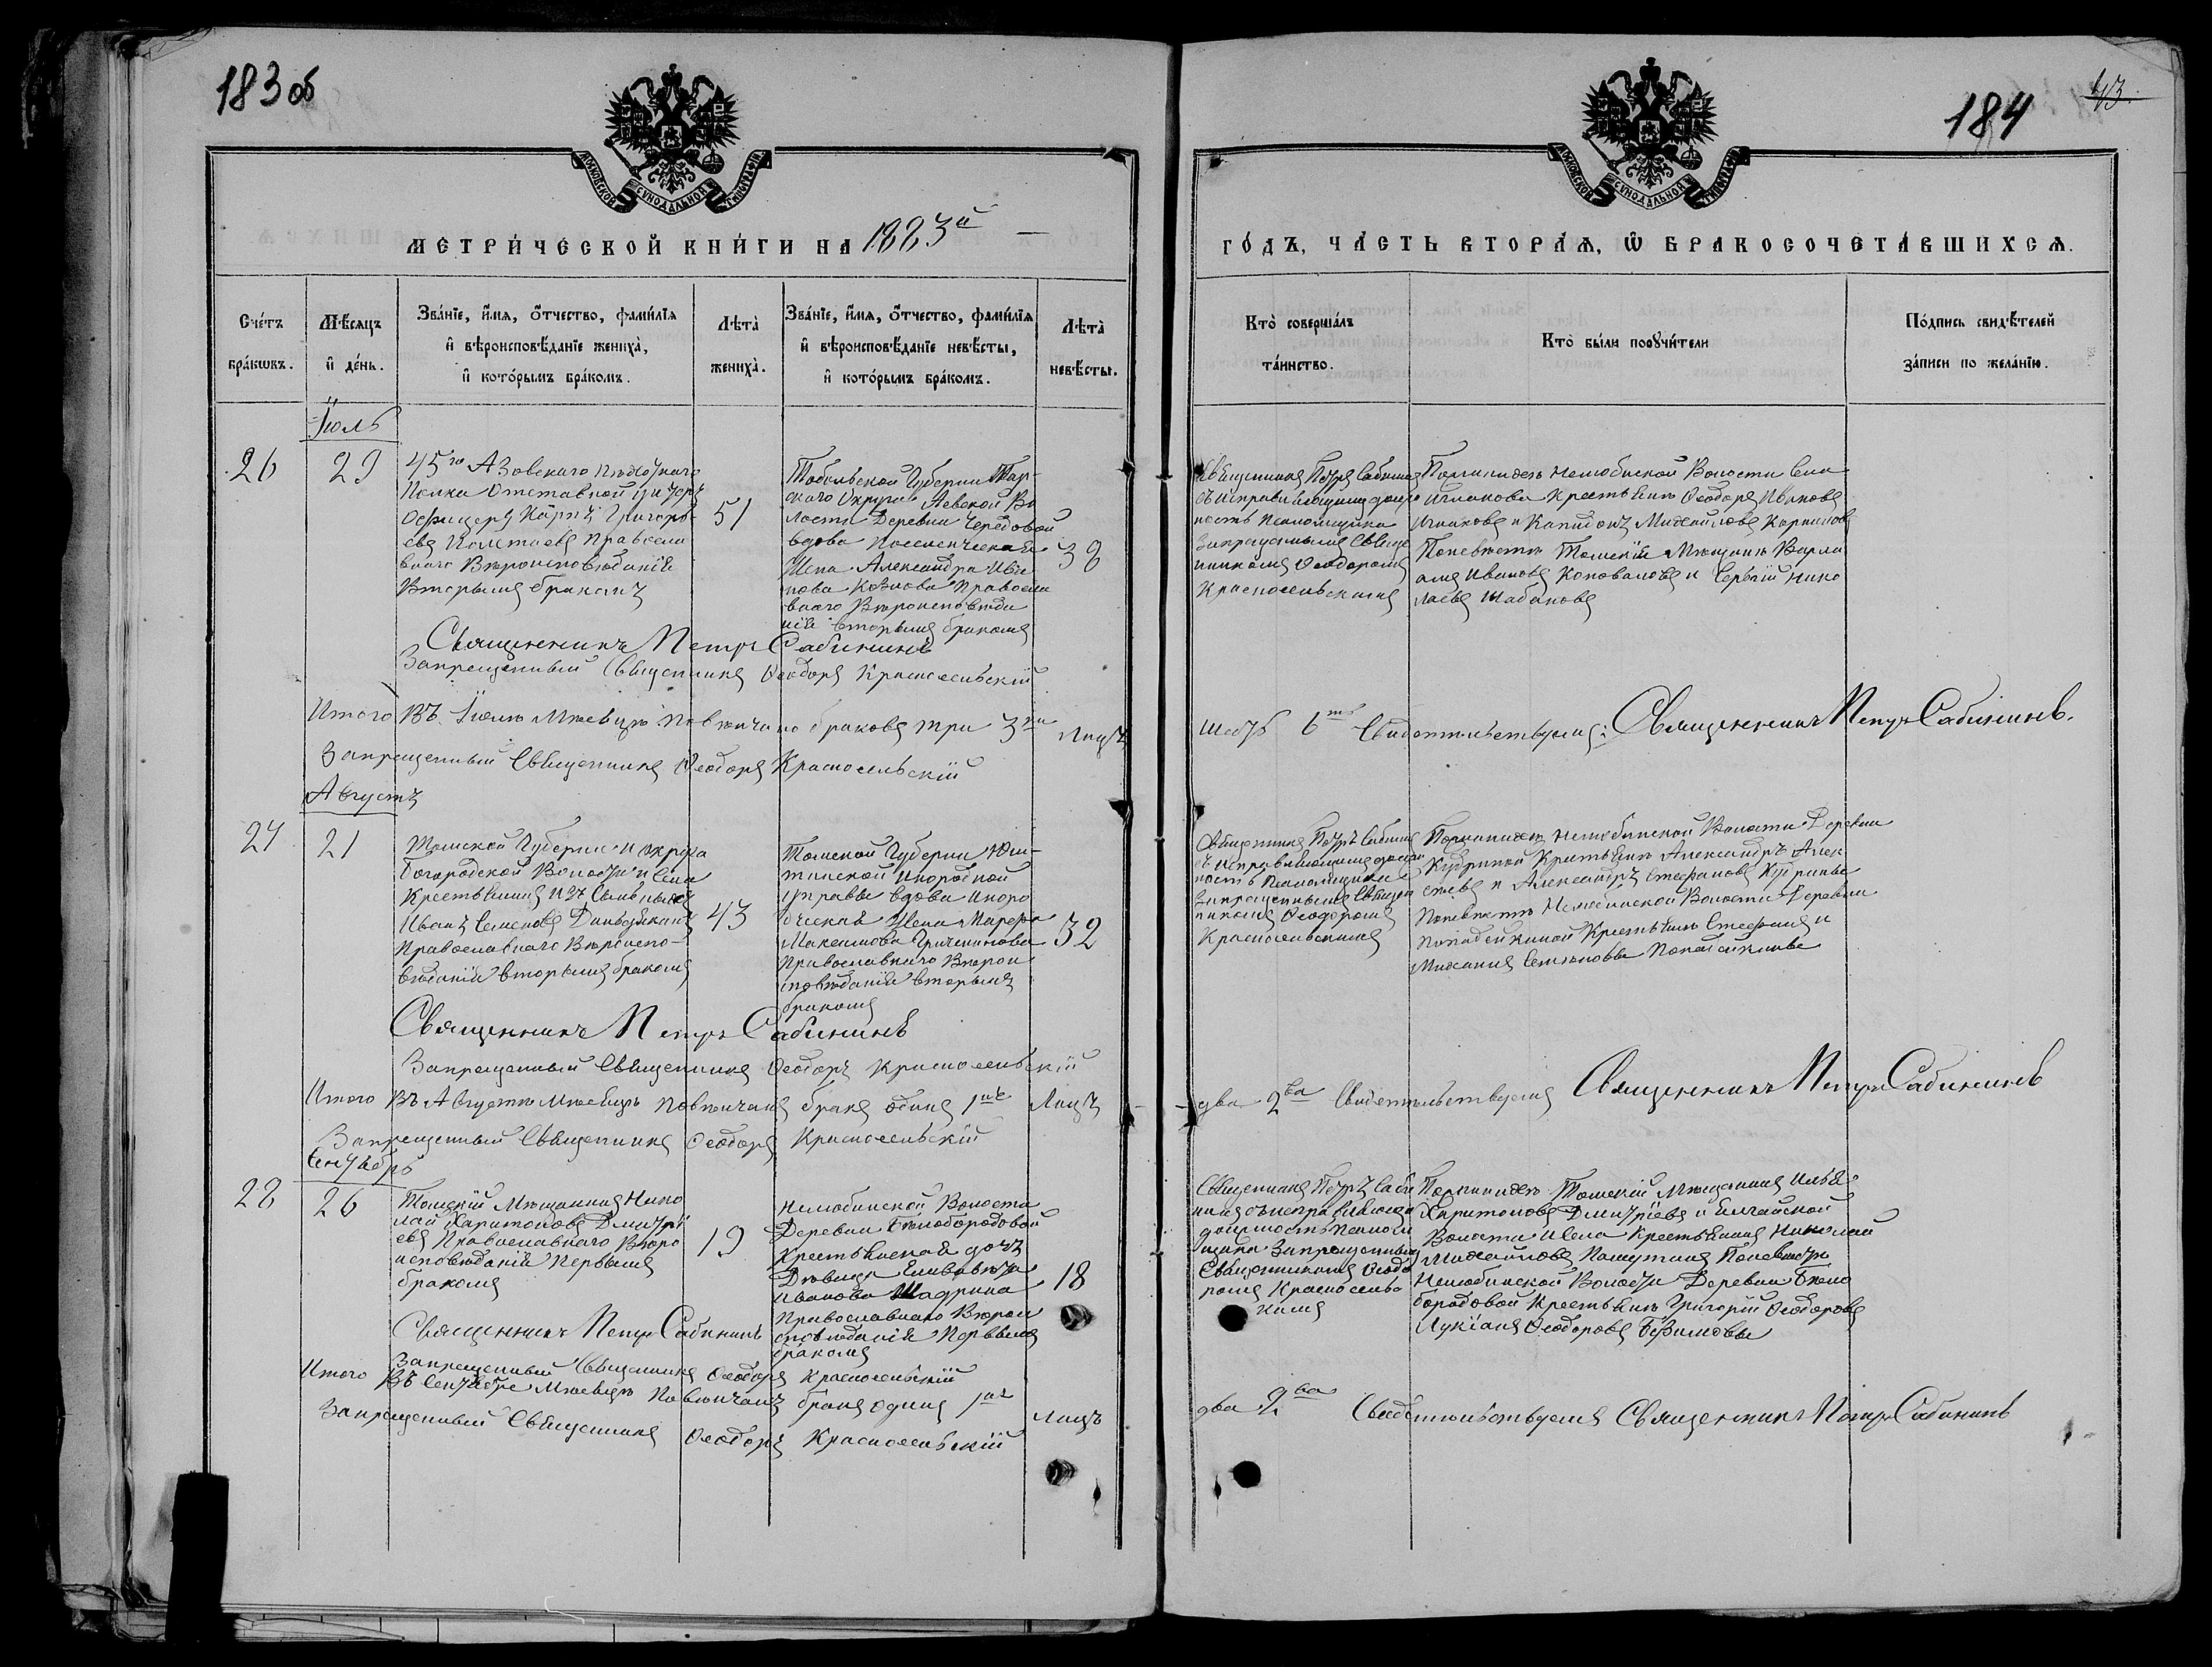 183 об
МОСКОВСКОЙ СѴНОДАЛЬНОЙ ТИПОГРАФІИ
МЕТРИ́ЧЕСКОЙ КНИ́ГИ НА 1883й
Сче́тъ бра́кѡвъ.
Мѣ́сяцъ и҆ де́нь.
Зва́нїе, и҆́мѧ, ѻ҆́тчество, фами́лїѧ и҆ вѣроисповѣ́данїе жениха̀, и҆ кото́рымъ бра́комъ.
Лѣта̀ жениха̀.
Зва́нїе, и҆́мѧ, ѻ҆́тчество, фами́лїѧ и҆ вѣроисповѣ́данїе невѣ́сты, и҆ кото́рымъ бра́комъ.
Лѣта̀ невѣ́сты.
Іюль
26
29
45го Азовскаго пѣхотнаго
Полка Отставной унтеръ
Офицеръ Григорь
евъ Православ
наго Вѣроисповѣданія
Вторымъ бракомъ
51
Тобольской Губерніи Тар-
скаго Округа Аевской Во
лости Деревни Чередовой
вдова поселенческая
Жена Александра Ива
нова Православ
наго Вѣроисповѣда
нія вторымъ бракомъ
38
Священникъ Петръ Сабининъ
Запрещенный Священникъ Ѳеодоръ Красносельскій
Итого Въ Іюлѣ Мѣсяцѣ повѣнчано браковъ три 3ри Лицъ
Запрещенный Священникъ Ѳеодоръ Красносельскій
Августъ
27
21
Томской Губерніи и округа
Богородской Волости и Села
Крестьянинъ изъ ссыльныхъ
Иванъ Семеновъ
Православнаго Вѣроиспо-
вѣданія вторымъ бракомъ
43
Томской Губерніи
Инородной
Управы вдова Иноро
ческая Жена Марфа
Максимова
Православнаго Вѣрои
сповѣданія вторымъ
бракомъ
32
Священникъ Петръ Сабининъ
Запрещенный Священникъ Ѳеодоръ Красносельскій
Итого Въ Августѣ Мѣсяцѣ повѣнчанъ бракъ одинъ 1нъ Лицъ
Запрещенный Священникъ Ѳеодоръ Красносельскій
Сентябрь
28
26
Томскій Мѣщанинъ Нико
лай Харитоновъ Дмитрі
евъ Православнаго Вѣро
исповѣданія Первымъ
бракомъ
19
Нелюбинской Волости
Деревни Бѣлобородовой
Крестьянская дочь
Дѣвица Елисавета
Иванова Шадрина
Православнаго Вѣрои
сповѣданія Первымъ
бракомъ
18
Священникъ Петръ Сабининъ
Запрещенный Священникъ Ѳеодоръ Красносельскій
Итого Въ Сентябрѣ Мѣсяцѣ Повѣнчанъ бракъ одинъ 1нъ Лицъ
Запрещенный Священникъ Ѳеодоръ Красносельскій
184
43.
МОСКОВСКОЙ СѴНОДАЛЬНОЙ ТИПОГРАФІИ
ГО́ДЪ, ЧА́СТЬ ВТОРА́Ѧ, Ѽ БРАКОСОЧЕТА́ВШИХСѦ.
Кто̀ соверша́лъ та́инство.
Кто̀ бы́ли порꙋчи́тели
По́дпись свидѣ́телей за́писи по жела́нїю.
Священникъ Петръ Сабининъ
съ исправляющимъ долж
ность псаломщика
Запрещеннымъ Священ
никомъ Ѳеодоромъ
Красносельскимъ
По женихѣ Нелюбинской Волости Села
Крестьяне Ѳеодоръ Ивановъ
и Капидонъ Михайловъ
По невѣстѣ Томскій Мѣщане Варла
амъ Ивановъ Коноваловъ и Сергѣй Нико
лаевъ Шабановъ
шесть 6ть Свидѣтельствуемъ: Священникъ Петръ Сабининъ.
Священникъ Петръ Сабининъ
съ исправляющимъ долж
ность Псаломщика
Запрещеннымъ Священ
никомъ Ѳеодоромъ
Красносельскимъ
По женихѣ Нелюбинской Волости Деревни
Кудриной Крестьяне Александръ Алек
сѣевъ и Александръ Стефановъ Кудрины
По невѣстѣ Нелюбинской Волости Деревни
Попадейкиной Крестьяне Стефанъ и
Михаилъ Семеновы Попадейкины
два 2ва Свидѣтельствуемъ Священникъ Петръ Сабининъ
Священникъ Петръ Саби
нинъ съ исправляющимъ
должность псалом
щика Запрещеннымъ
Священникомъ Ѳеодо
ромъ Красносельс
кимъ
По женихѣ Томскій Мѣщанинъ Илья
Харитоновъ Дмитріевъ и Елгайской
Волости и Села Крестьянинъ Николай
Михайловъ По невѣстѣ
Нелюбинской Волости Деревни Бѣло
бородовой Крестьяне Григорій Ѳеодоровъ
Лукіанъ Ѳеодоровъ
два 2ва Свидѣтельствуемъ Священникъ Петръ Сабининъ